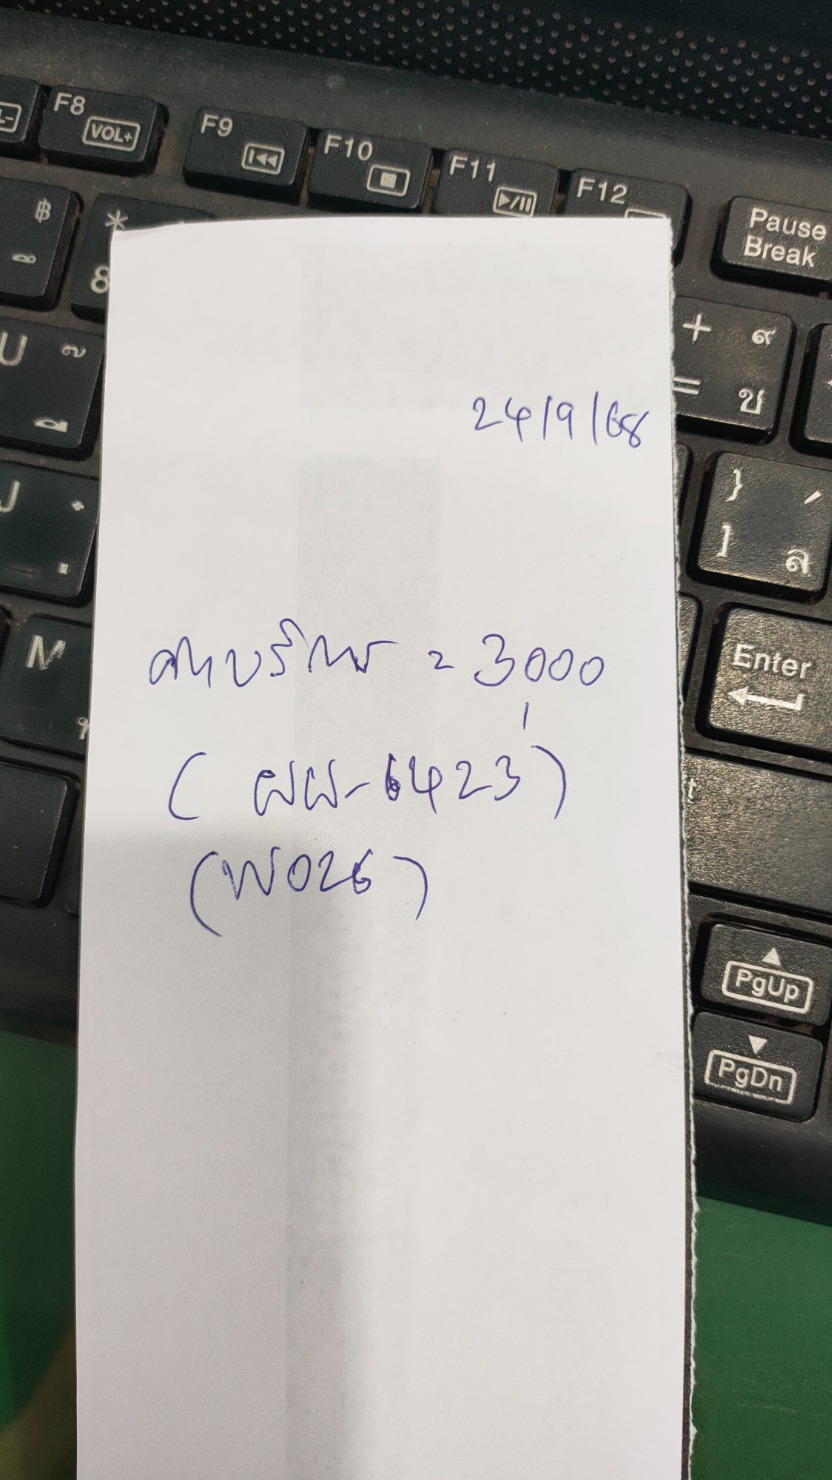 F8
VOL+
F9
F10
F11
F12
Pause
Break
฿
*
8
U
+
๙
=
ช
24/9/68
J
}
]
ล
ค่าบริการ = 3,000
M
Enter
(ผผ-6423)
(W026)
PgUp
PgDn